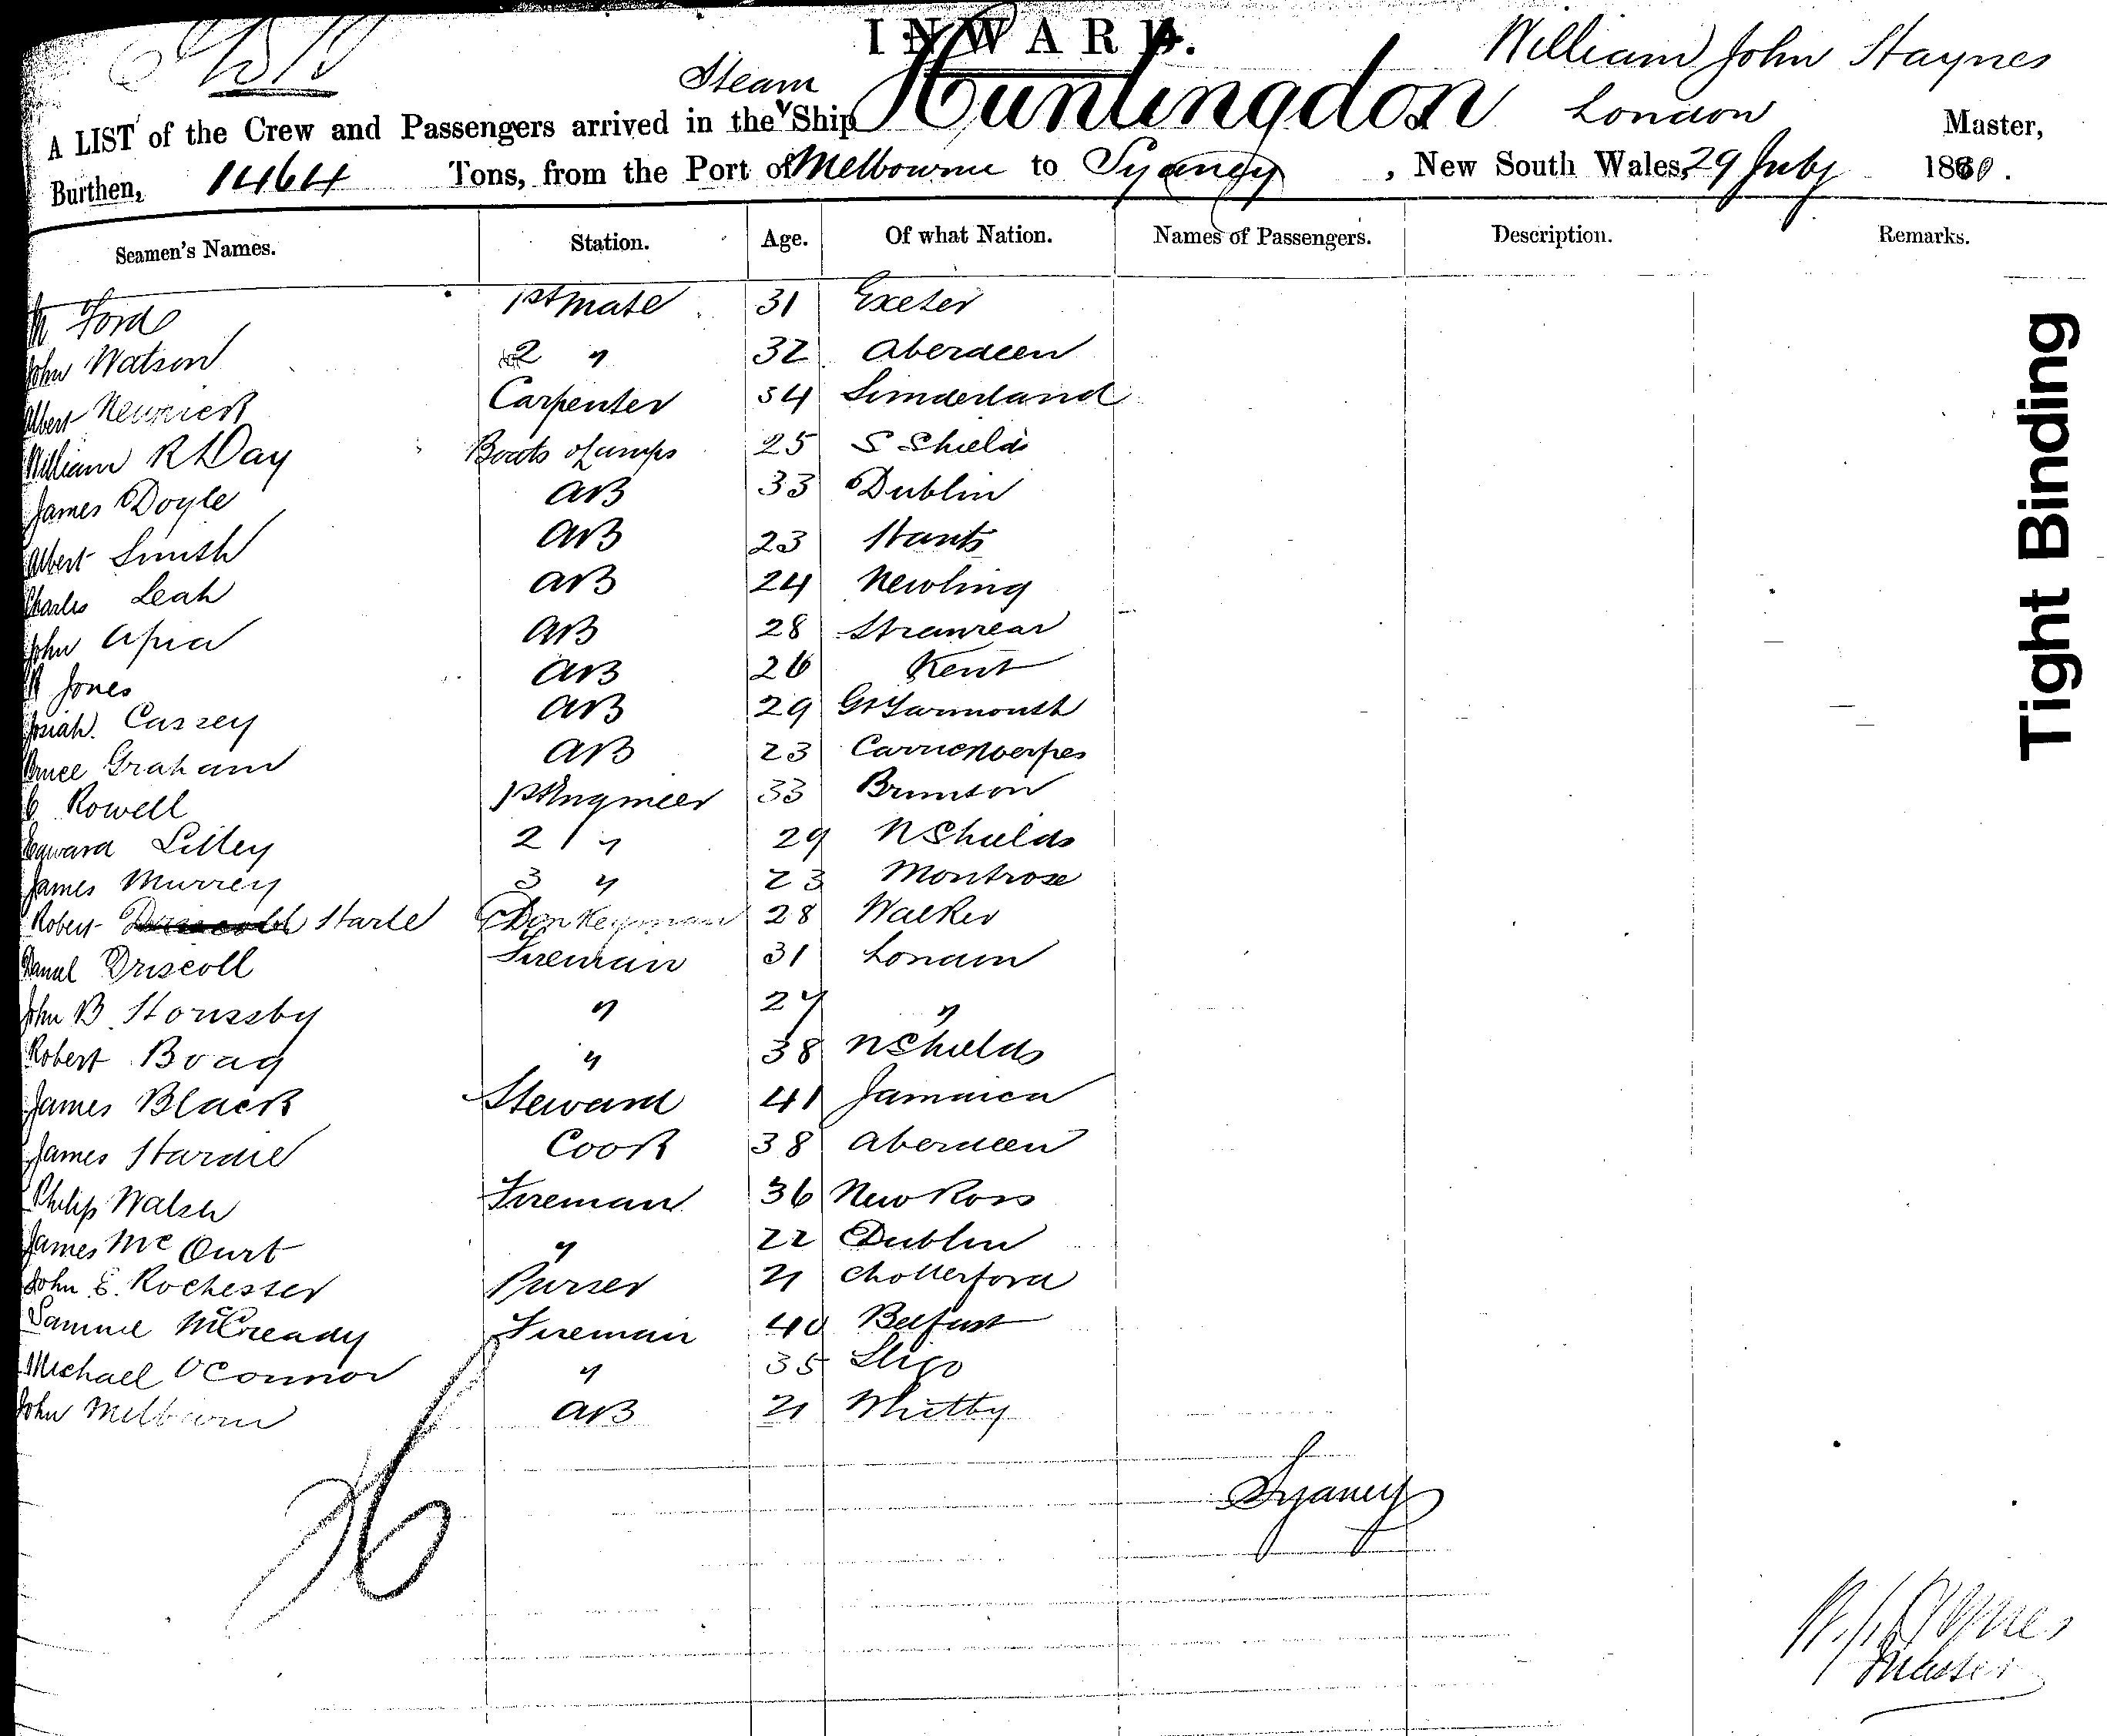 INWARD.
William John Haynes
Steam
London
A LIST of the Crew and Passengers arrived in the Ship Huntingdon of Master,
Burthen, 1464 Tons, from the Port of Melbourne to Sydney, New South Wales, 29 July 18
Seamen's Names. Station. Age. Of what Nation. Names of Passengers. Description. Remarks.
Ford 1st Mate 31 Exeter
John Watson 2 " 32 Aberdeen
Albert Carpenter 34 Sunderland
William R Day Boats & Lamps 25 S Shields
James Doyle AB 33 Dublin
Albert Smith AB 23 Hants
Charles Leah AB 24 Newling
John Apia AB 28 Stranrear
Jones AB 26 Kent
Josiah Cassey AB 29 Gt Yarmouth
Bruce Graham AB 23
Rowell 1st Engineer 33
Edward Lilley 2 " 29 N Shields
James Murrey 3 " 23 Montrose
Robert Driscoll Harle Donkeyman 28 Walker
Daniel Driscoll Fireman 31 London
John B. " 27 "
Robert Boag " 38 N Shields
James Black Steward 41 Jamaica
James Hardie Cook 38 Aberdeen
Philip Walsh Fireman 36 New Ross
James Mc Ourt " 22 Dublin
John E. Rochester Purser 21 Chollerford
Samuel McCready Fireman 40 Belfast
Michael O'Connor " 35 Sligo
John Melburn AB 21 Whitby
26
Sydney
W. J. Haynes
Master
Tight Binding